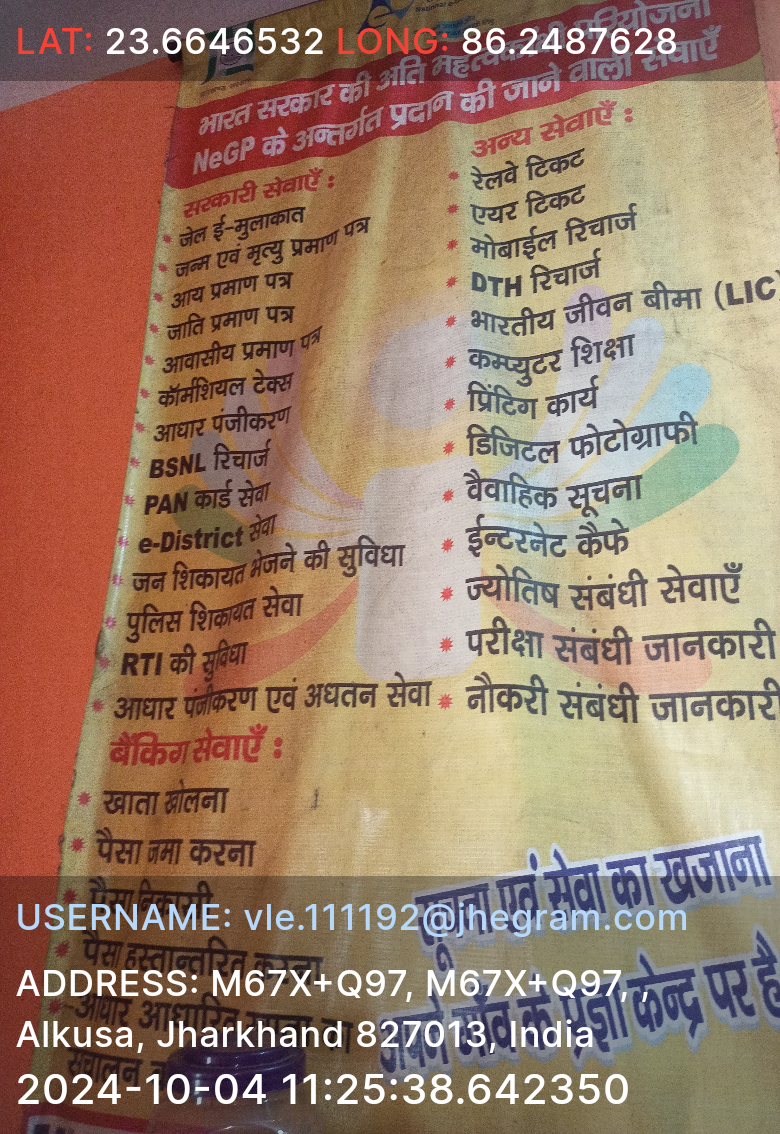 LAT: 23.6646532 LONG: 86.2487628
भारत सरकार की अति महत्वकांक्षी परियोजना
NeGP के अन्तर्गत प्रदान की जाने वाली सेवाएँ
सरकारी सेवाएँ :
जेल ई-मुलाकात
जन्म एवं मृत्यु प्रमाण पत्र
आय प्रमाण पत्र
जाति प्रमाण पत्र
आवासीय प्रमाण पत्र
कॉर्मशियल टेक्स
आधार पंजीकरण
BSNL रिचार्ज
PAN कार्ड सेवा
e-District सेवा
जन शिकायत भेजने की सुविधा
पुलिस शिकायत सेवा
RTI की सुविधा
आधार पंजीकरण एवं अधतन सेवा
बैंकिग सेवाएँ :
खाता खोलना
पैसा जमा करना
पैसा निकासी
पैसा हस्तान्तरित करना
आधार आधारित
संचालन
अन्य सेवाएँ :
रेलवे टिकट
एयर टिकट
मोबाईल रिचार्ज
DTH रिचार्ज
भारतीय जीवन बीमा (LIC)
कम्प्युटर शिक्षा
प्रिंटिग कार्य
डिजिटल फोटोग्राफी
वैवाहिक सूचना
ईन्टरनेट कैफे
ज्योतिष संबंधी सेवाएँ
परीक्षा संबंधी जानकारी
नौकरी संबंधी जानकारी
सूचना एवं सेवा का खजाना
अपने गाँव के प्रज्ञा केन्द्र पर है
USERNAME: vle.111192@jhegram.com
ADDRESS: M67X+Q97, M67X+Q97, ,
Alkusa, Jharkhand 827013, India
2024-10-04 11:25:38.642350